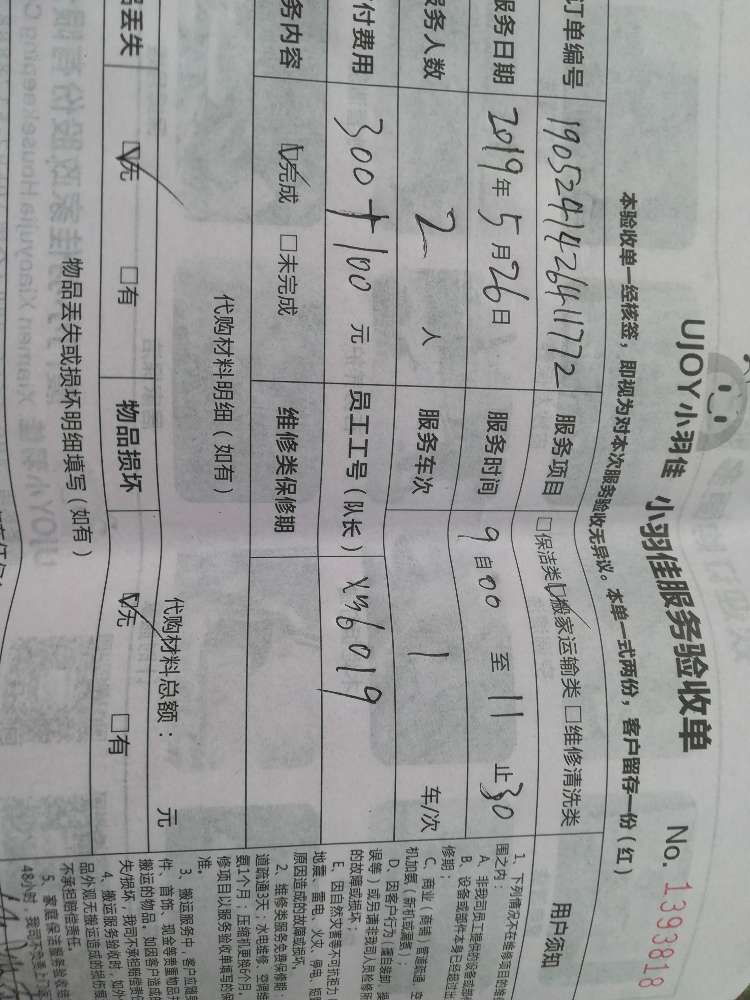 UJOY小羽佳 小羽佳服务验收单 No. 1393818
本验收单一经核签，即视为对本次服务验收无异议。本单一式两份，客户留存一份（红）
订单编号 190524142641177​2 服务项目 □保洁类 ☑搬家运输类 □维修清洗类 用户须知
服务日期 2019年5月26日 服务时间 9自00至11止30
务人数 2人 服务车次 1 车/次
付费用 300+100 元 员工工号（队长） XM6019
务内容 ☑完成 □未完成 维修类保修期
代购材料明细（如有） 代购材料总额： 元
丢失 ☑无 □有 物品损坏 ☑无 □有
物品丢失或损坏明细填写（如有）
1、下列情况不在维修项目的维
围之内：
A、非我司员工提供的设备或部
B、设备或部件本身已经超过出
修期；
C、商业（商铺、管道疏通、空
机加氨（新机或漏氨）；
D、因客户行为（重启装卸、摸
误等）或另请非我司人员维修所
的故障或损坏；
E、因自然灾害等不可抗拒力
地震、雷电、火灾、停电、
原因造成的故障或损坏。
2、维修类服务免费保修期：
道疏通3天；水电维修、空调维
氨1个月；压缩机更换6个月，
修项目以服务验收单填写的保
准。
3、搬运服务中，客户应随身
件、首饰、现金等贵重物品并
搬运的物品。如因客户造成的
失/损坏，我司不承担赔偿责任
4、搬运服务验收时，如外
品外观无搬运造成的损伤痕
不承担赔偿责任。
5、家庭保洁服务验收
48小时，我司不免费上门